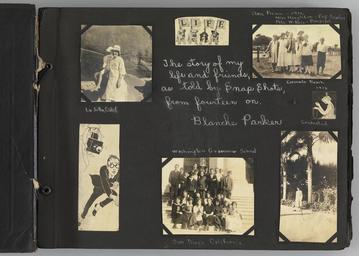 LIFE
The story of my
life and friends,
as told by Snap Shots,
from fourteen on.
Blanche Parker
Coronado Beach
1912
Washington Grammar School
San Diego California